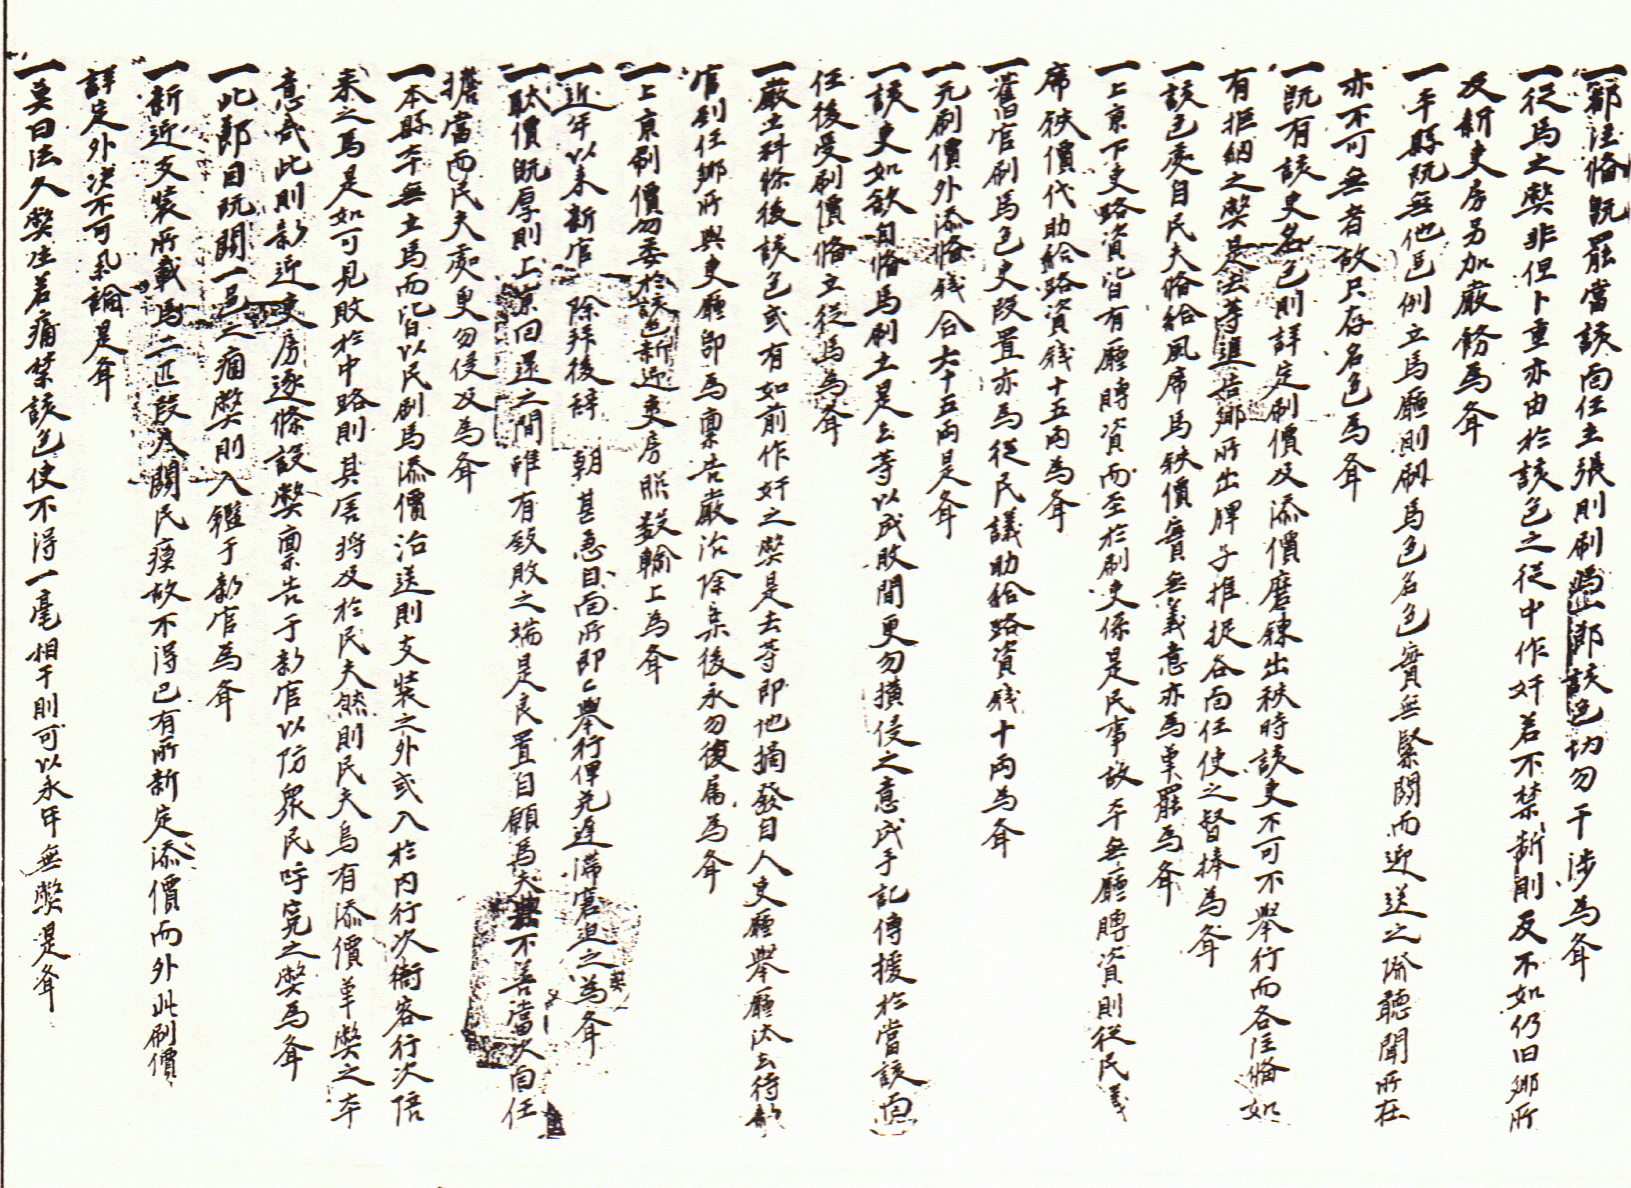 一窮洼俻旣罷當該面任主張則刷馬節該色切勿干涉爲㫆
一從馬之弊非但卜重亦由於該色之從中作奸若不禁斷則反不如仍旧鄕所
及新吏房另加嚴飭爲㫆
一本縣旣無他邑例立馬廳則刷馬色名色實無緊關而迎送之際聽聞所在
亦不可無者故只存名色爲㫆
一旣有該吏名色則詳定刷價及添價磨鍊出秩時該吏不可不擧行而各任俻如
有拒納之弊是去等進告鄕所出牌子推捉各面任使之督捧爲㫆
一該色處自民夫俻給風席馬秩價實無義意亦爲革罷爲㫆
一上京下吏路資皆有廳賻資而至於刷吏係是民事故本無廳賻資則從民議
席秩價代助給路資錢十五兩爲㫆
一舊旧官刷馬色吏段置亦爲從民議助給路資錢十兩爲㫆
一元刷價外添俻錢合六十五兩是㫆
一該吏如欲自俻馬刷土是去等以成敗間更勿攘侵之意成手記傳援於當該面
任後受刷價俻立從馬爲㫆
一嚴立科條後該色或有如前作奸之弊是去等卽地摘發自人吏廳擧廳汰去待新
官到任鄕所與吏廳卽爲稟告嚴治除案後永勿復屬爲㫆
一上京刷價勿委於該色新迎吏房照數輸上爲㫆
一近年以來新官 除拜後辭 朝甚急自面所卽卽擧行俾免遲滯窘迫之弊爲㫆
一駄價旣厚則上京回還之間雖有致敗之端是良置自願馬夫其不善當次面任
擔當而民夫處更勿侵及爲㫆
一本縣本無土馬而皆以民刷馬添價治送則支裝之外或入於內行次衙客行次陪
來之馬是如可見敗於中路則其害將及於民夫然則民夫烏有添價革弊之本
意哉此則新迎吏房逐條設弊稟告于新官以防衆民呼寃之弊爲㫆
一此節目旣關一邑之痼弊則入鑑于新官爲㫆
一新迎支裝所載馬二匹段大關民瘼故不得已有所新定添價而外此刷價
詳定外決不可氣論是㫆
一莫曰法久弊生若痛禁該色使不得一毫相干則可以永年無弊是㫆